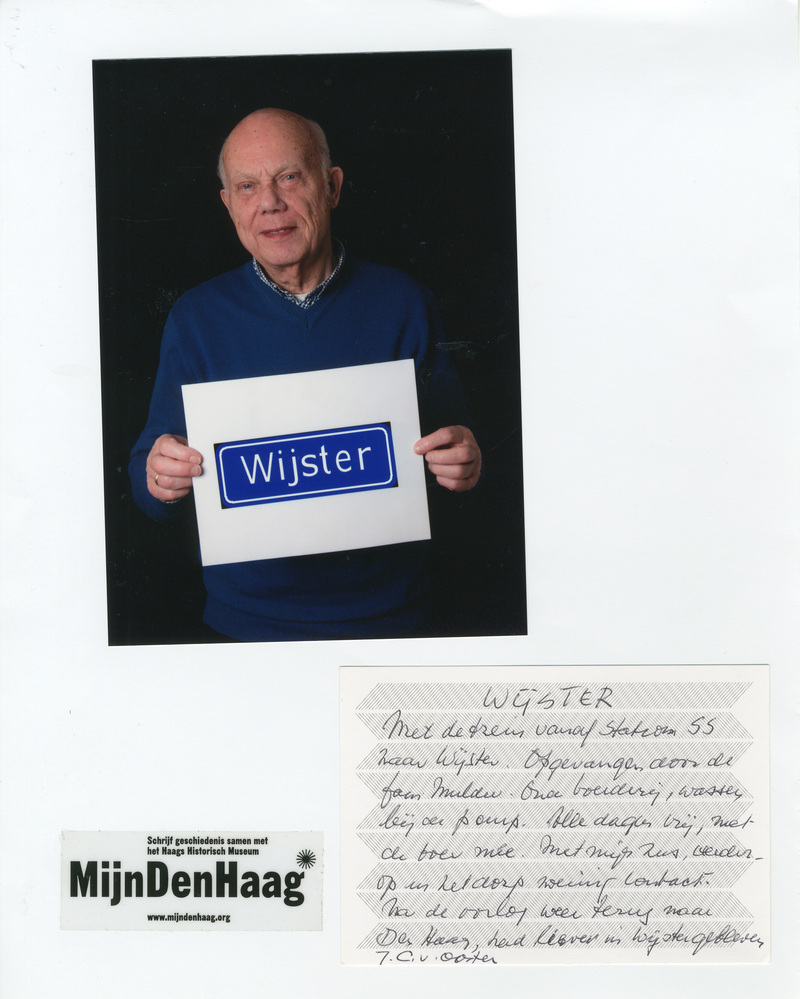 Wijster
WIJSTER
Met de trein vanaf Station SS
naar Wijster. Opgevangen door de
fam Mulder. Oude boerderij, wassen
bij de pomp. Alle dagen vrij, met
de boer mee. Met mijn zus, verder-
op in het dorp weinig contact.
Na de oorlog weer terug naar
Den Haag, had liever in Wijster gebleven
J.C.v. Ooster
Schrijf geschiedenis samen met
het Haags Historisch Museum
MijnDenHaag
www.mijndenhaag.org